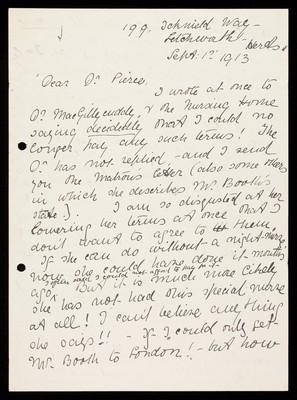 199. Icknield Way -
Letchworth - Herts.
Sept. 1st 1913
Dear Dr Pierce,
I wrote at once to
Dr MacGillycuddy, & the Nursing Home
saying decidedly that I could no
longer pay any such terms! The
Dr has not replied, - and I send
you the Matrons letter (also some others
in which she describes Mr Booth's
state.) I am so disgusted at her
lowering her terms at once that I
don't want to agree to them.
If she can do without a night-nurse,
now, she could have done it months
ago, when I could not afford to pay for it
but it is much more likely
she has not had this special nurse
at all! I can't believe anything
she says!! - If I could only get
Mr Booth to London! - but how